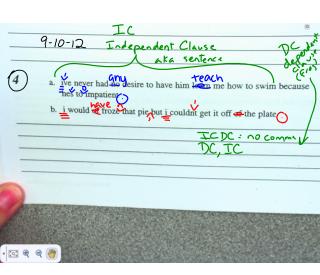 IC
9-10-12
Independent Clause
aka sentence
DC
dependent
clause
4
any
teach
a. ive never had no desire to have him learn me how to swim because
hes to impatient
have
b. i would of froze that pie but i couldnt get it off of the plate
ICDC = no comma
DC, IC